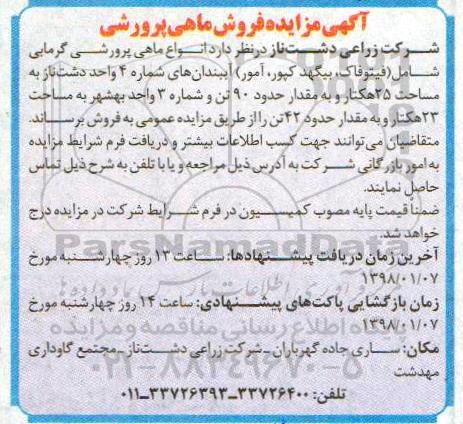 آگهی مزایده فروش ماهی پرورشی
شرکت زراعی دشت‌ناز در نظر دارد انواع ماهی پرورشی گرمابی
شامل (فیتوفاک، بیگهد کپور، آمور) آببندان‌های شماره ۴ واحد دشت‌ناز به
مساحت ۲۵هکتار و به مقدار حدود ۹۰ تن و شماره ۳ واحد بهشهر به مساحت
۲۳هکتار و به مقدار حدود ۴۲تن را از طریق مزایده عمومی به فروش برساند.
متقاضیان می‌توانند جهت کسب اطلاعات بیشتر و دریافت فرم شرایط مزایده
به امور بازرگانی شرکت به آدرس ذیل مراجعه و یا با تلفن به شرح ذیل تماس
حاصل نمایند.
ضمناً قیمت پایه مصوب کمیسیون در فرم شرایط شرکت در مزایده درج
خواهد شد.
ParsNamadData
آخرین زمان دریافت پیشنهادها: ساعت ۱۳ روز چهارشنبه مورخ
۱۳۹۸/۰۱/۰۷
زمان بازگشایی پاکت‌های پیشنهادی: ساعت ۱۴ روز چهارشنبه مورخ
۱۳۹۸/۰۱/۰۷
پایگاه اطلاع رسانی مناقصه و مزایده
مکان: ساری جاده گهرباران-شرکت زراعی دشت‌ناز-مجتمع گاوداری
مهدشت
۰۲۱-۸۸۳۴۹۶۷۰-۵
تلفن: ۳۳۷۲۶۴۰۰-۳۳۷۲۶۳۹۳-۰۱۱